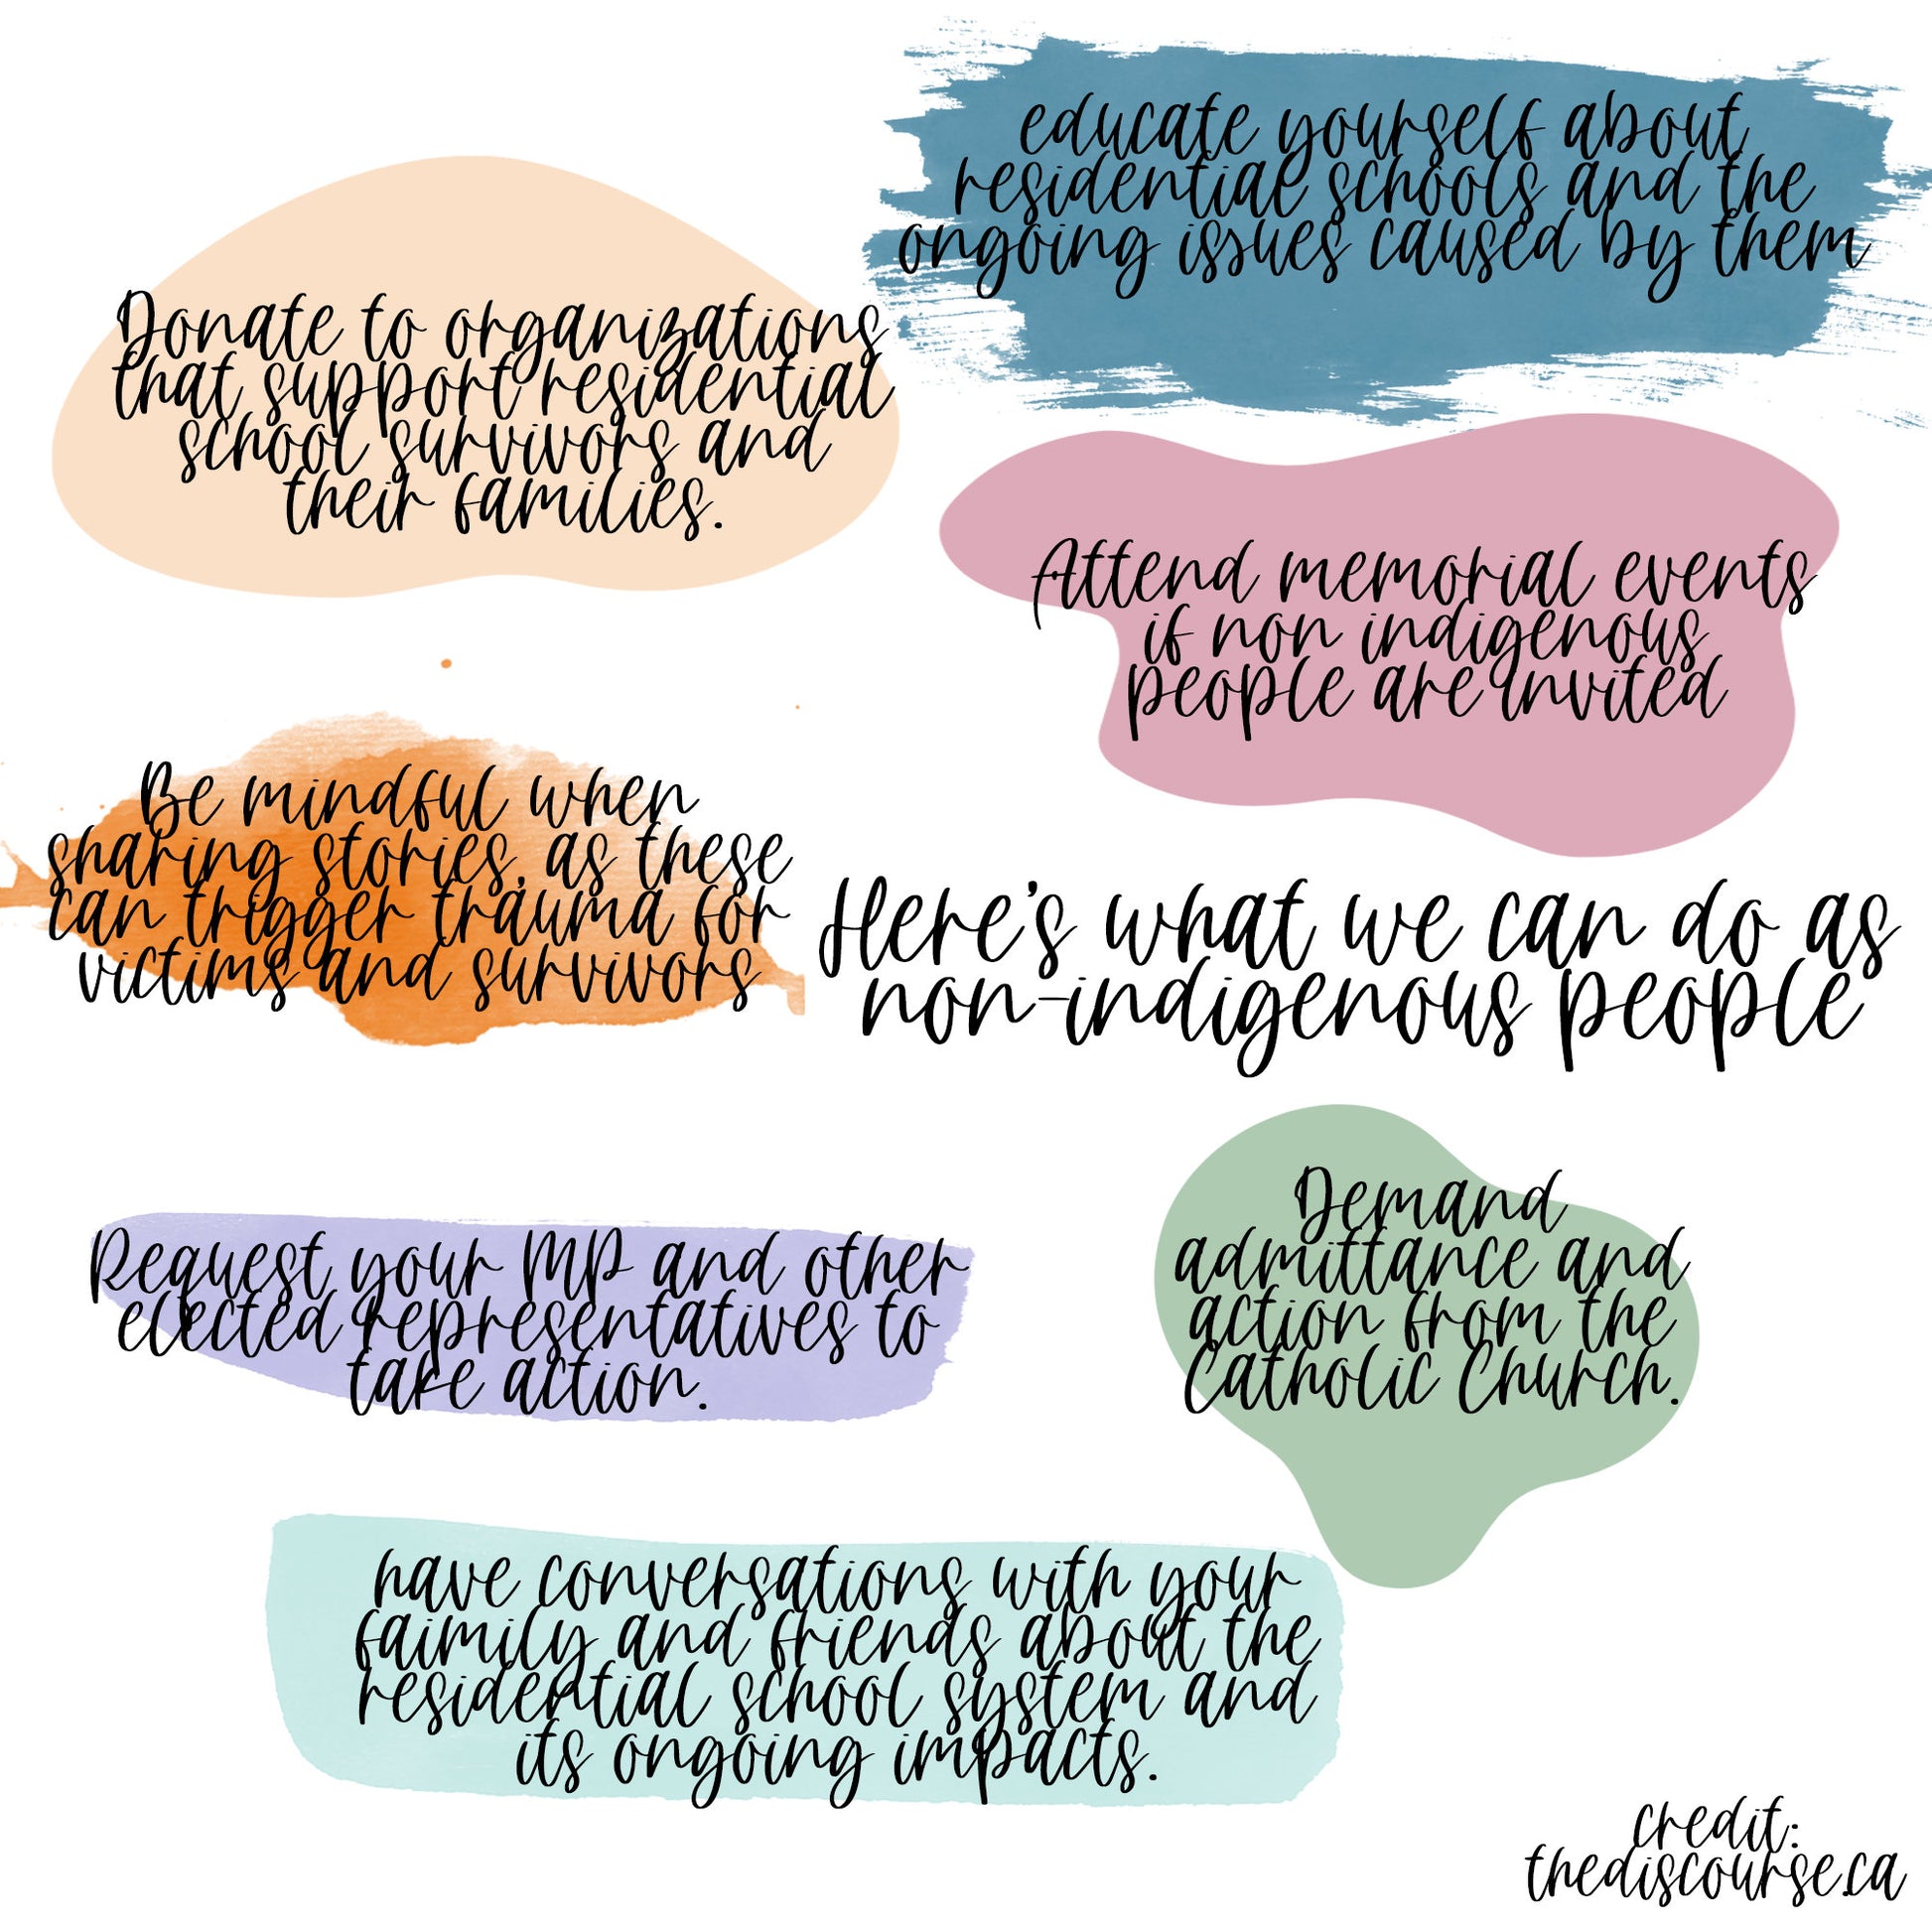 educate yourself about
residential schools and the
ongoing issues caused by them
Donate to organizations
that support residential
school survivors and
their families.
Attend memorial events
if non indigenous
people are invited
Be mindful when
sharing stories, as these
can trigger trauma for
victims and survivors
Here's what we can do as
non-indigenous people
Request your MP and other
elected representatives to
take action.
Demand
admittance and
action from the
Catholic Church.
have conversations with your
faimily and friends about the
residential school system and
its ongoing impacts.
credit:
thediscourse.ca